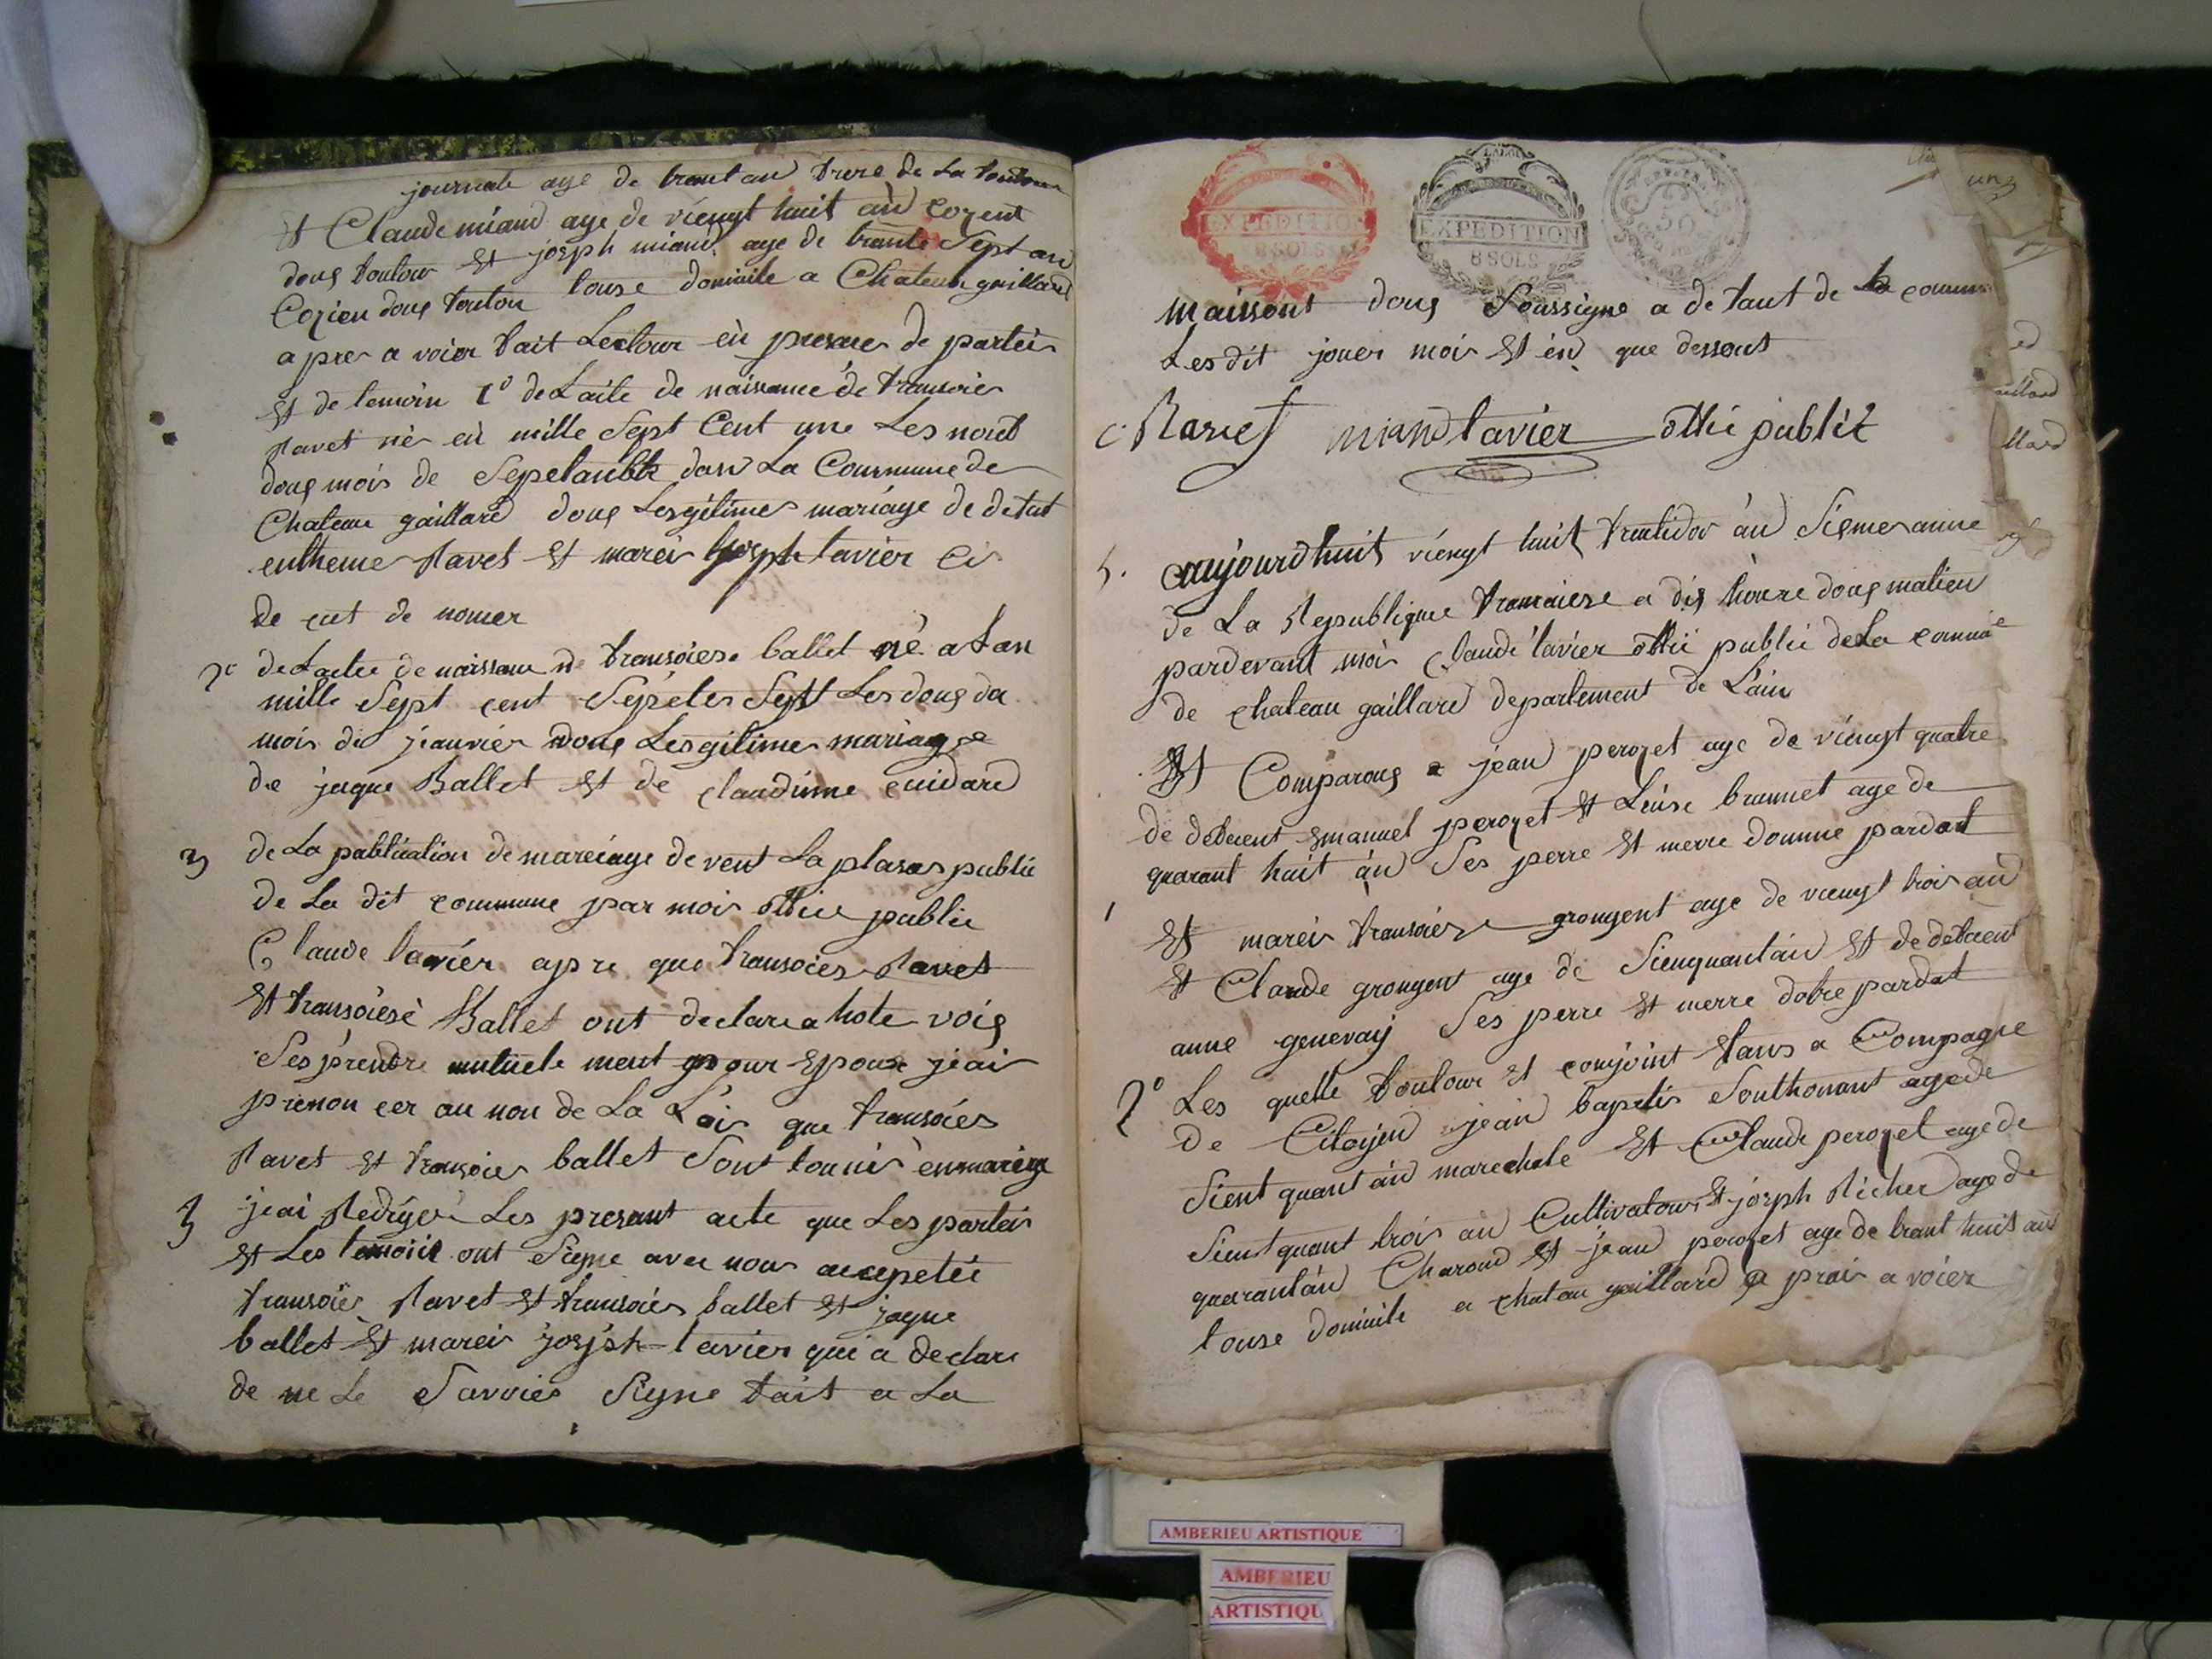 journale age de trant an frere de La foutour
Et Claude miand age de viengt huit an cozent
doug foutour Et joseph miand age de trante Sept an
Cozien doug foutou touse domicile a Chateau gaillard
apres a voier fait Lectour en presance de parteis
Et de temoin 1º de Laite de naissance de fransoies
Ravet nè en mille Sept Cent une Les nout
doug mois de Sepetanbr dans La Commune de
Chateau gaillard doug Lesgitimes mariage de defut
entheme Ravet Et mareis joseph favier Ci
de cut de nomer
2º de Lactee de naissance de fransoiese ballet né a Lan
mille Sept cent Sepetes Sept Les doug du
mois de jeanvier doug Lesgitimes mariage
de jaque Ballet Et de claudinne cuidard
3 de La publication de mareiage de vent La plases publie
de La dit commune par mois office publie
Claude favier apre que fransoies Ravet
Et fransoiese Ballet ont declare a hote voig
Ses prendre mutuele ment pour Epouse jeai
prenon cer au non de La Lois que fransoies
Ravet Et fransoies ballet Sont tounis en mareige
3 jeai Redigée Les presant acte que Les parteis
Et Les temoiis ont Signe avec nous accepetée
fransoies Ravet Et fransoies ballet Et jaque
ballet Et mareis joseph favier qui a declare
de ne Le Savoies Signe fait a La
un
EXPEDITION
8 SOLS
EXPEDITION
8 SOLS
50
maisont doug Soussigne a defaut de commu
Les dit jouer mois Et en que dessout
C. Ravet miand favier offie publit
5. aujourdhuit viengt huit fructidor an Siemes anne
de La Republique francaiese a dis houre doug matien
pardevant mois Claude favier offie publie de La comune
de chateau gaillard departement de Lain
Et Comparoug a jean perozet age de viengt quatre
de defuent Emanuel perozet Et Leuise brunnet age de
quarant huit an Ses perre Et merre dounne pardat
1 Et mareis fransoiese grongent age de viengt trois an
Et Claude grongent age de Sienquantan Et de defuent
anne genevay Ses perre Et merre dotre pardat
2º Les quelle foutour Et conjoint fans a Compagne
de Citoijen jean bapetis Southonant age de
Sient quant an marechale Et Claude perozet age de
Sient quant trois an Cultivatour Et joseph Richer age de
quarantan Charond Et jean perozet age de trant huit an
touse domicile a chatau gaillard a preis a voier
AMBERIEU ARTISTIQUE
AMBERIEU
ARTISTIQU